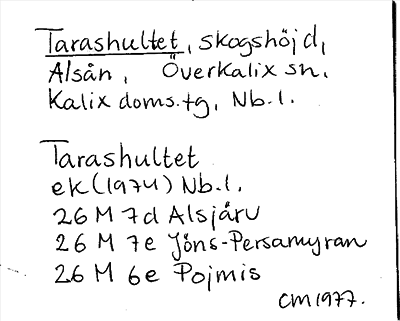 Tarashultet, skogshöjd,
Alsån, Överkalix sn,
Kalix doms.tg, Nb.l.
Tarashultet
ek (1974) Nb.l.
26 M 7d Alsjärv
26 M 7e Jöns-Persamyran
26 M 6e Pojmis
CM 1977.